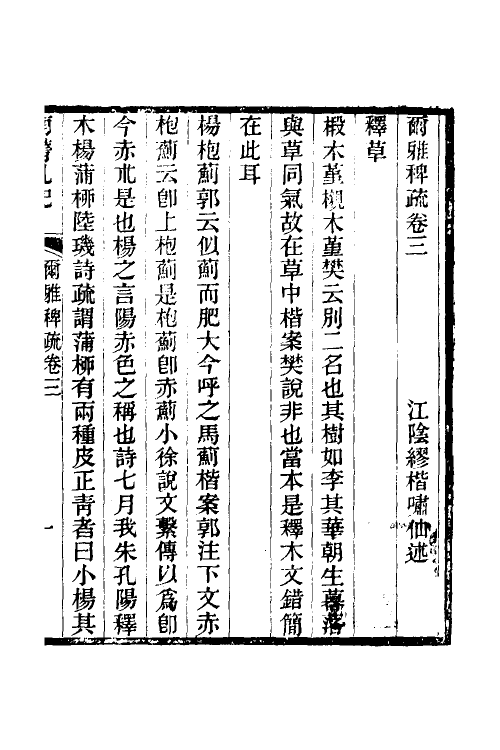 爾雅稗疏卷三
江陰繆楷嘯仙述
釋草
椴木堇櫬木堇樊云別二名也其樹如李其華朝生暮落
與草同氣故在草中楷案樊說非也當本是釋木文錯簡
在此耳
楊枹薊郭云似薊而肥大今呼之馬薊楷案郭注下文赤
枹薊云卽上枹薊是枹薊卽赤薊小徐說文繫傳以爲卽
今赤朮是也楊之言陽赤色之稱也詩七月我朱孔陽釋
木楊蒲桺陸璣詩疏謂蒲桺有兩種皮正靑者曰小楊其
爾雅稗疏卷三
一